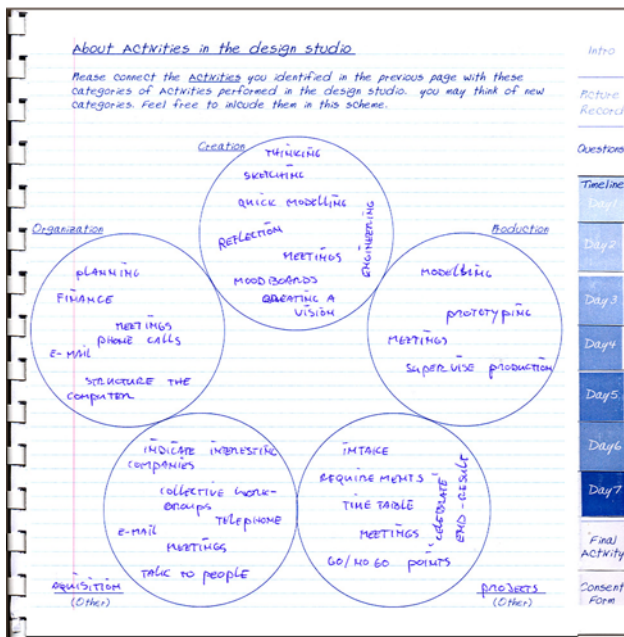 About Activities in the design studio
Please connect the Activities you identified in the previous page with these
categories of Activities performed in the design studio. you may think of new
categories. Feel free to inlcude them in this scheme.
Creation
THINKING
SKETCHING
QUICK MODELLING
REFLECTION
ENGINEERING
MEETINGS
MOODBOARDS
CREATING A
VISION
Organization
PLANNING
FINANCE
MEETINGS
PHONE CALLS
E-MAIL
STRUCTURE THE
COMPUTER
Production
MODELLING
PROTOTYPING
MEETINGS
SUPERVISE PRODUCTION
INDICATE INTERESTING
COMPANIES
COLLECTIVE WORK-
GROUPS
TELEPHONE
E-MAIL
MEETINGS
TALK TO PEOPLE
AQUISITION
(Other)
INTAKE
REQUIREMENTS
TIME TABLE
MEETINGS
GO/NO GO POINTS
'CELEBRATE'
END-RESULT
PROJECTS
(Other)
Intro
Picture
Record
Questions
Timeline
Day1
Day2
Day3
Day4
Day5
Day6
Day7
Final
Activity
Consent
Form